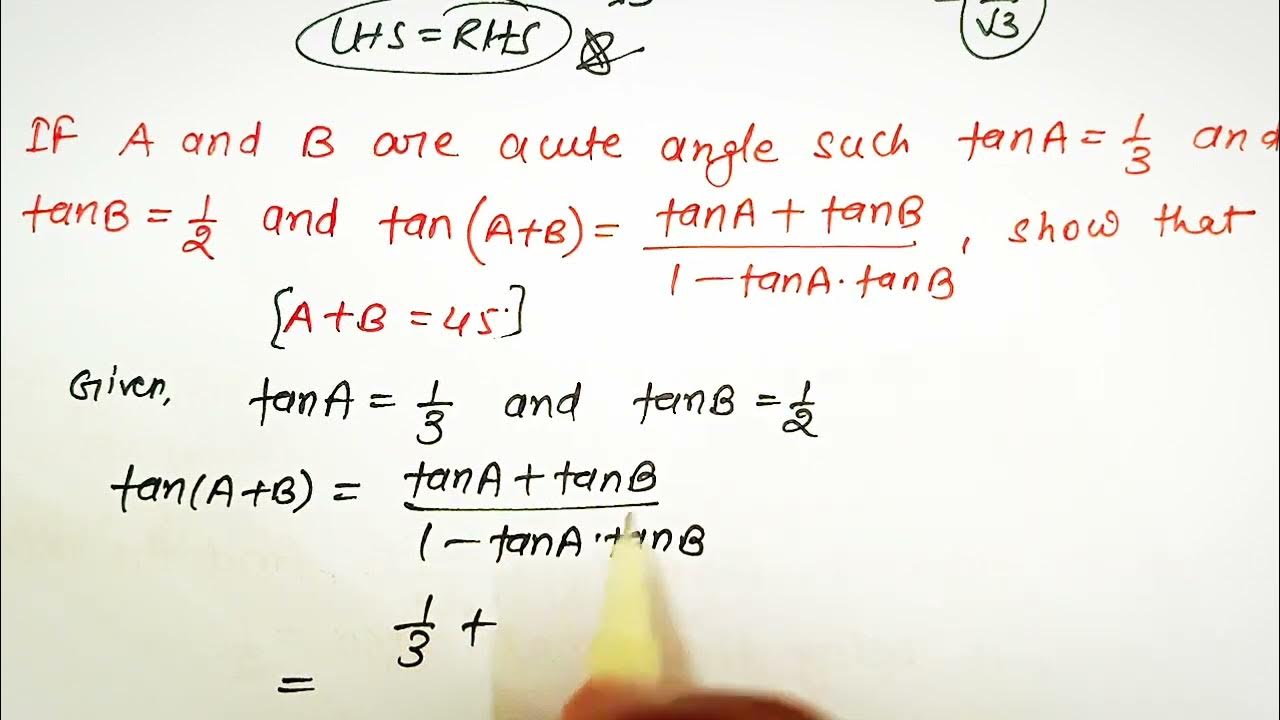 LHS = RHS
√3
If A and B are acute angle such tanA = 1/3 and
tanB = 1/2 and tan(A+B) = (tanA + tanB)/(1 - tanA · tanB), show that
[A+B = 45°]
Given, tanA = 1/3 and tanB = 1/2
tan(A+B) = (tanA + tanB)/(1 - tanA · tanB)
= 1/3 +